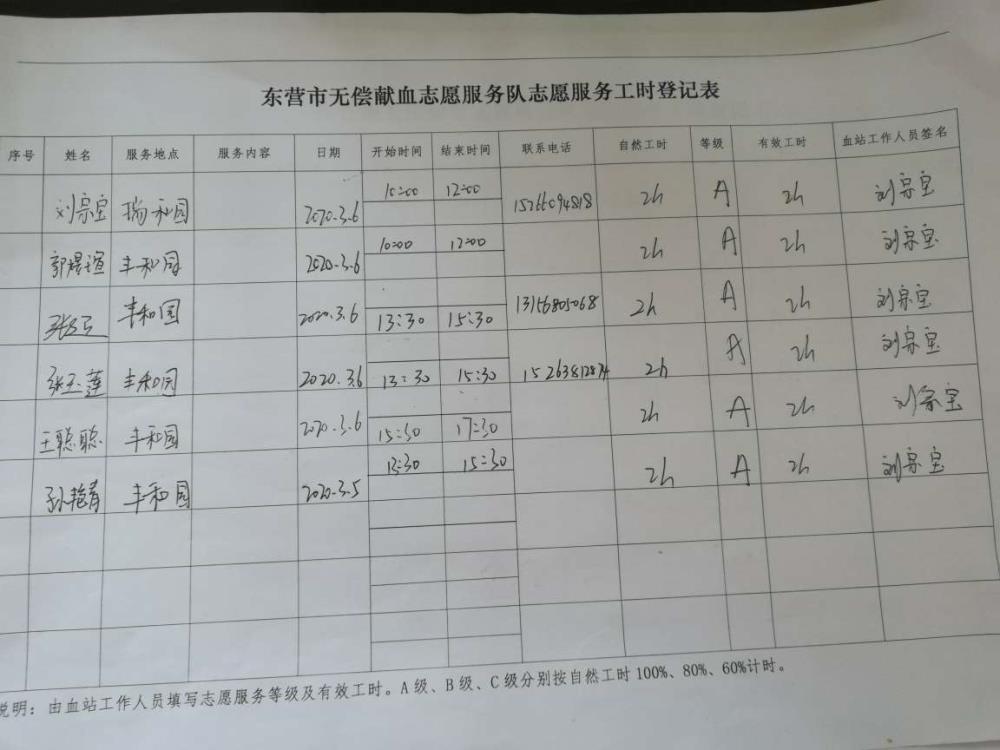 东营市无偿献血志愿服务队志愿服务工时登记表
序号 姓名 服务地点 服务内容 日期 开始时间 结束时间 联系电话 自然工时 等级 有效工时 血站工作人员签名
刘宗宝 瑞和园 2020.3.6 10:00 12:00 15266094818 2h A 2h 刘宗宝
郭煜瑄 丰和园 2020.3.6 10:00 12:00 2h A 2h 刘宗宝
丰和园 2020.3.6 13:30 15:30 13156805068 2h A 2h 刘宗宝
张玉莲 丰和园 2020.3.6 13:30 15:30 2h A 2h 刘宗宝
王聪聪 丰和园 2020.3.6 15:30 17:30 2h A 2h 刘宗宝
孙艳青 丰和园 2020.3.5 13:30 15:30 2h A 2h 刘宗宝
说明：由血站工作人员填写志愿服务等级及有效工时。A级、B级、C级分别按自然工时100%、80%、60%计时。